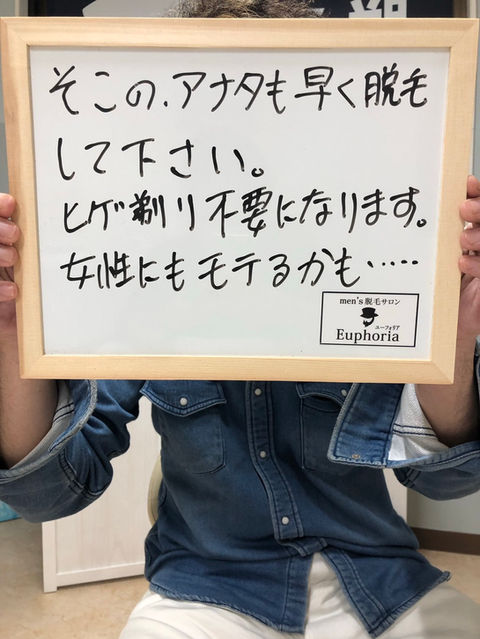 そこの、アナタも早く脱毛
して下さい。
ヒゲ剃り不要になります。
女性にもモテるかも……
men's 脱毛サロン
ユーフォリア
Euphoria